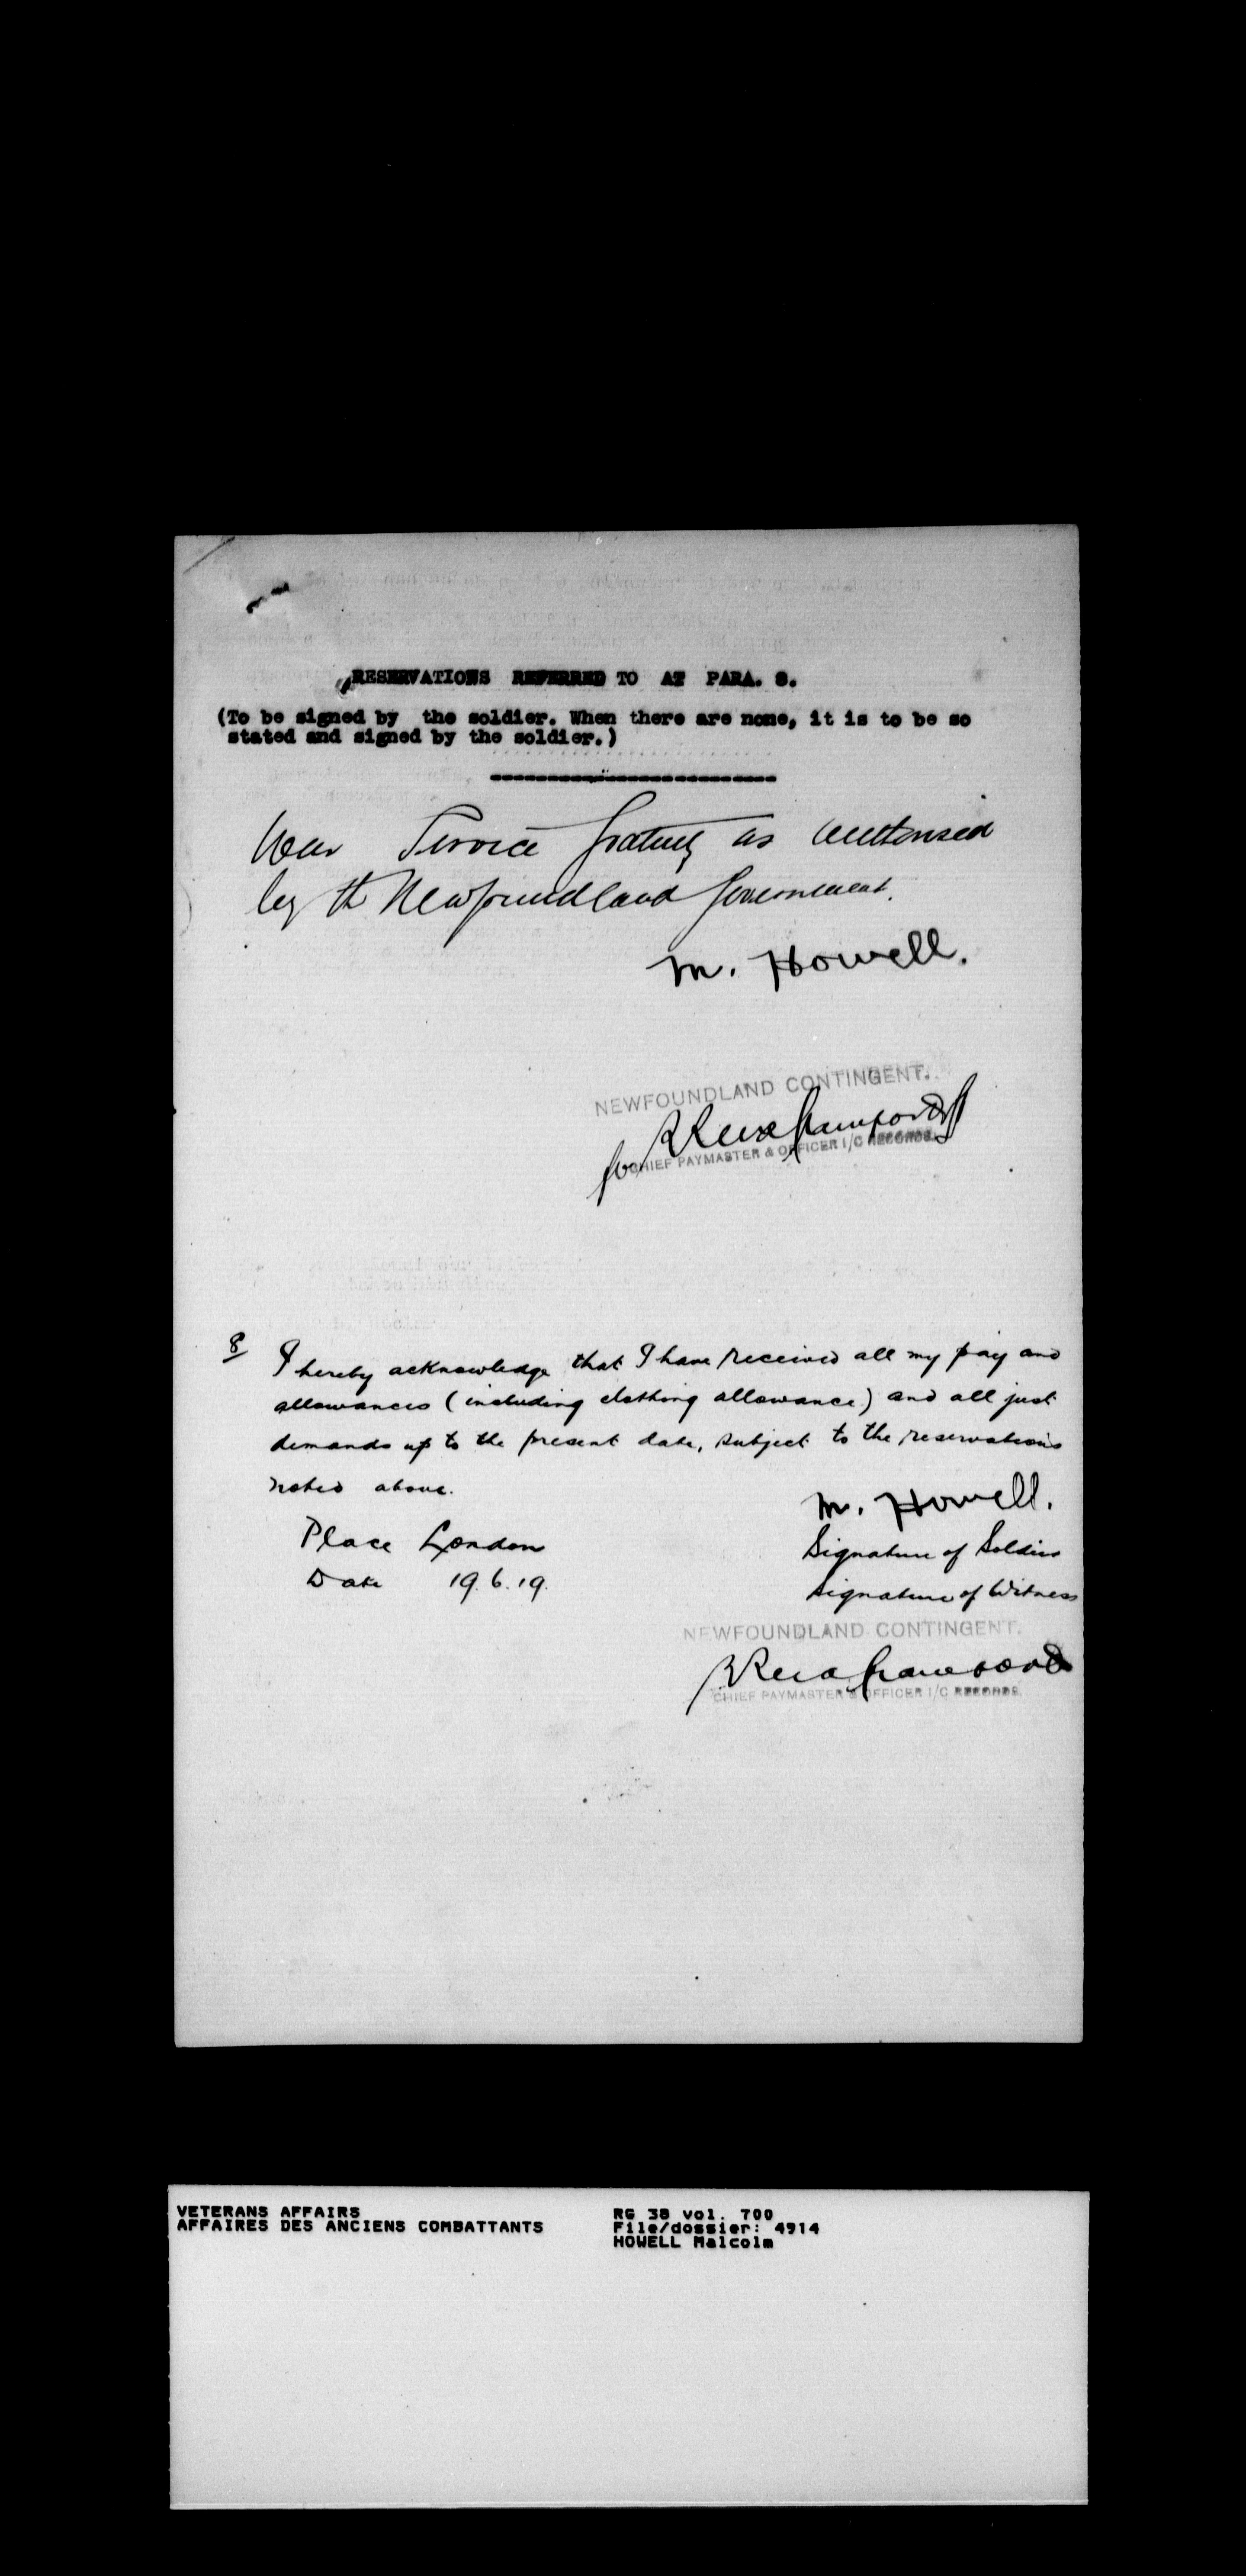 RESERVATIONS REFERRED TO AT PARA. 8.
(To be signed by the soldier. When there are none, it is to be so
stated and signed by the soldier.)
War Service Gratuity as authorised
by the Newfoundland Government.
M. Howell.
NEWFOUNDLAND CONTINGENT.
for
CHIEF PAYMASTER & OFFICER I/C RECORDS.
8 I hereby acknowledge that I have received all my pay and
allowances (including clothing allowance) and all just
demands up to the present date, subject to the reservations
noted above.
M. Howell.
Place London
Signature of Soldier
Date 19.6.19.
Signature of Witness
NEWFOUNDLAND CONTINGENT.
CHIEF PAYMASTER & OFFICER I/C RECORDS.
VETERANS AFFAIRS
AFFAIRES DES ANCIENS COMBATTANTS
RG 38 vol. 700
File/dossier: 4914
HOWELL Malcolm